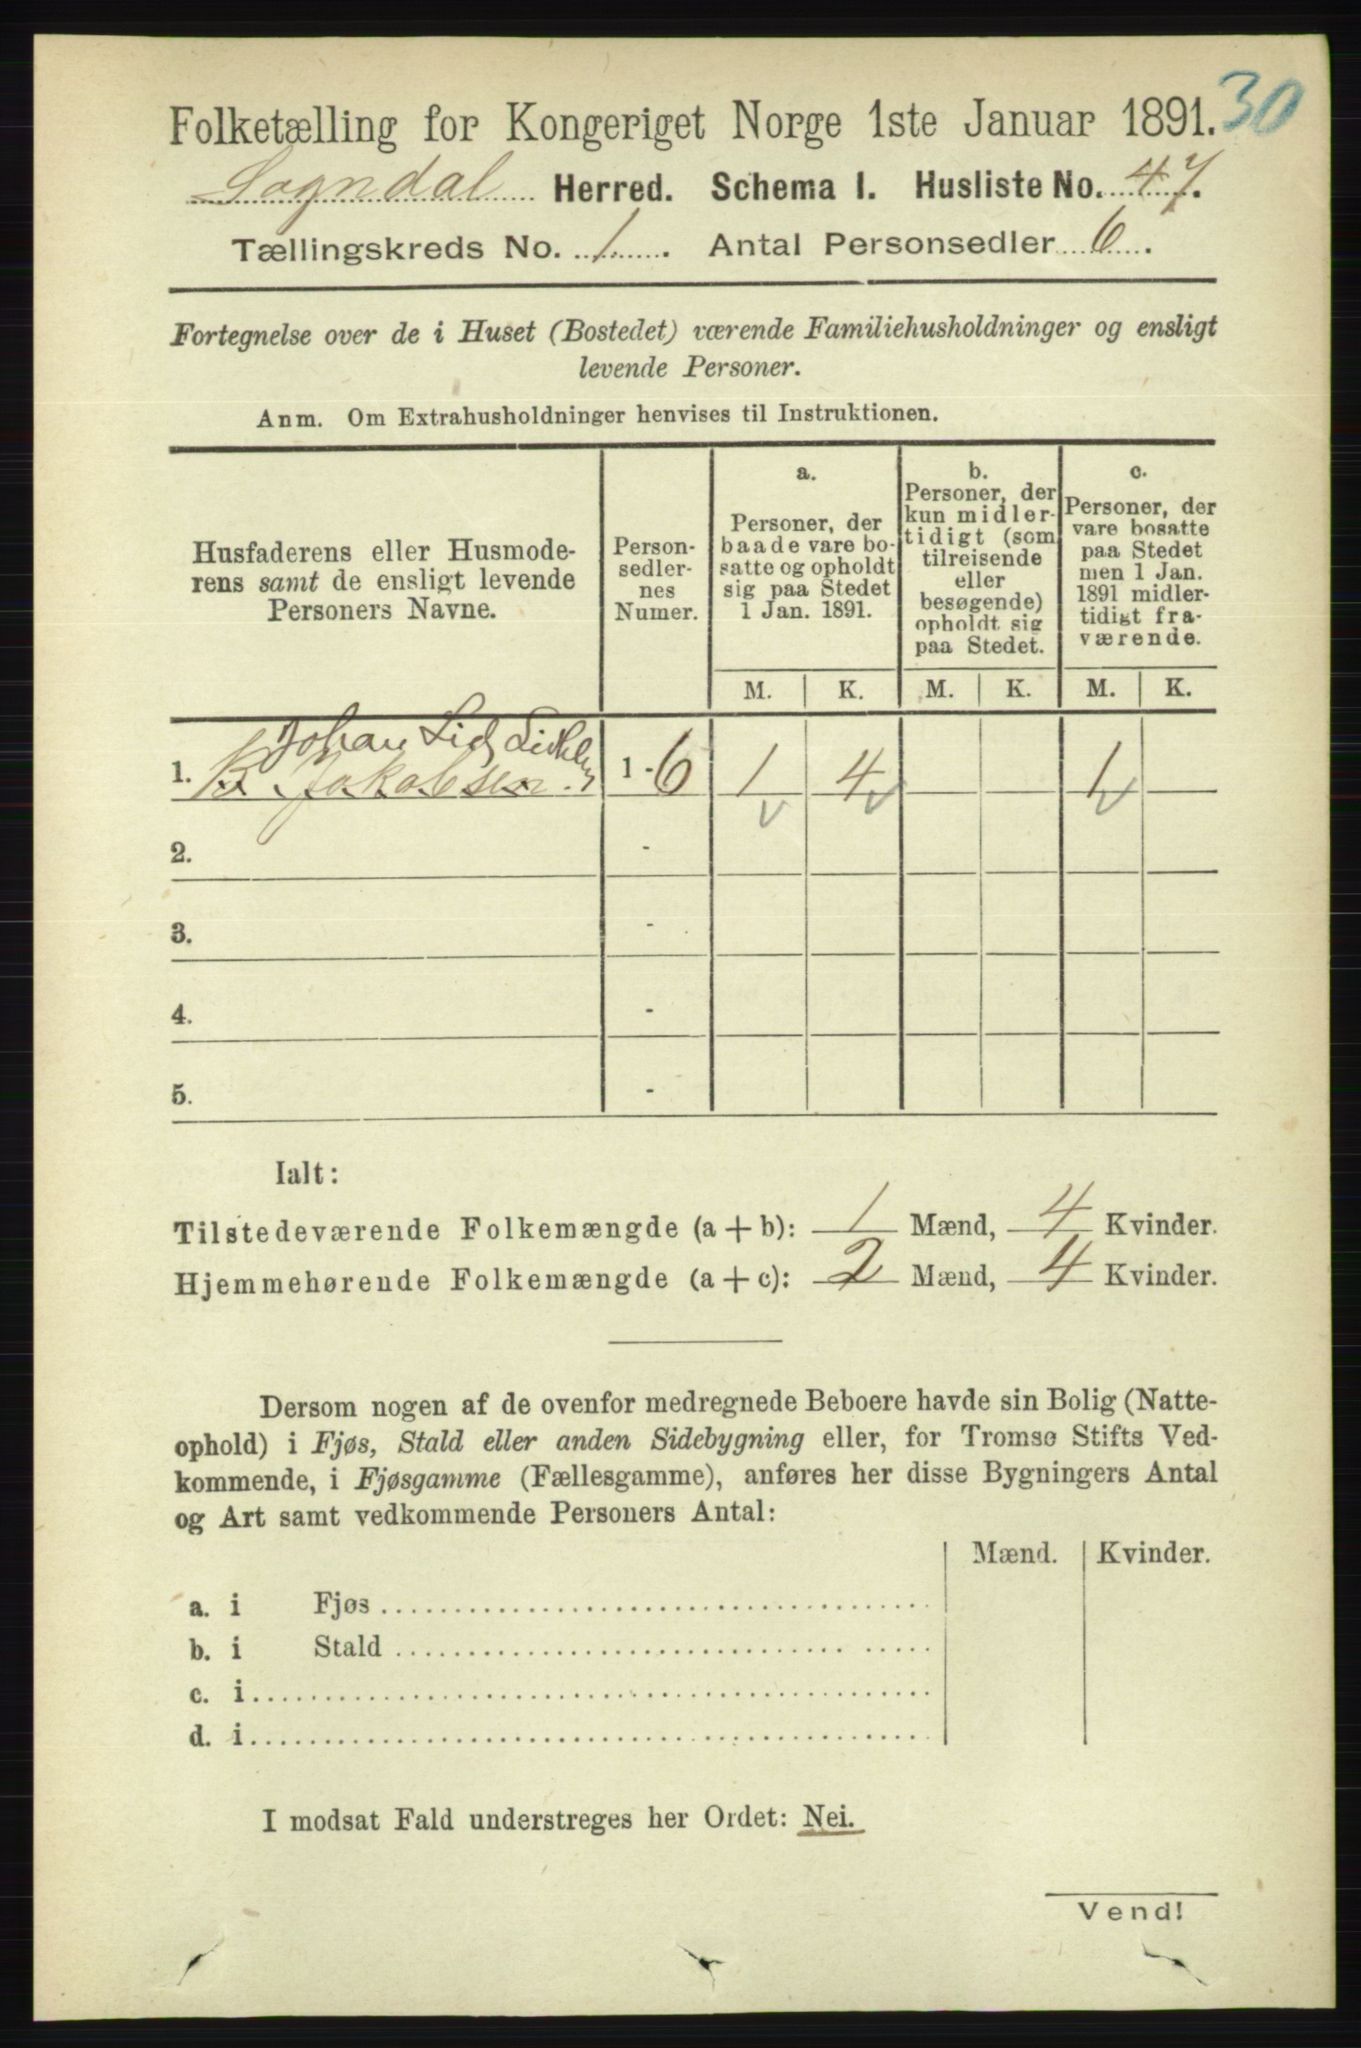 30
Folketælling for Kongeriget Norge 1ste Januar 1891.
Sogndal Herred. Schema I. Husliste No. 47.
Tællingskreds No. 1. Antal Personsedler 6.
Fortegnelse over de i Huset (Bostedet) værende Familiehusholdninger og ensligt
levende Personer.
Anm. Om Extrahusholdninger henvises til Instruktionen.
Husfaderens eller Husmode-
rens samt de ensligt levende
Personers Navne.
Person-
sedler-
nes
Numer.
a.
Personer, der
baade vare bo-
satte og opholdt
sig paa Stedet
1 Jan. 1891.
b.
Personer, der
kun midler-
tidigt (som
tilreisende
eller
besøgende)
opholdt sig
paa Stedet.
c.
Personer, der
vare bosatte
paa Stedet
men 1 Jan.
1891 midler-
tidigt fra-
værende.
M. K. M. K. M. K.
Johan
1. K. Jakobsen. 1 - 6 1 4 1
2. -
3. -
4. -
5. -
Ialt:
Tilstedeværende Folkemængde (a + b): 1 Mænd, 4 Kvinder.
Hjemmehørende Folkemængde (a + c): 2 Mænd, 4 Kvinder.
Dersom nogen af de ovenfor medregnede Beboere havde sin Bolig (Natte-
ophold) i Fjøs, Stald eller anden Sidebygning eller, for Tromsø Stifts Ved-
kommende, i Fjøsgamme (Fællesgamme), anføres her disse Bygningers Antal
og Art samt vedkommende Personers Antal:
Mænd. Kvinder.
a. i Fjøs
b. i Stald
c. i
d. i
I modsat Fald understreges her Ordet: Nei.
Vend!